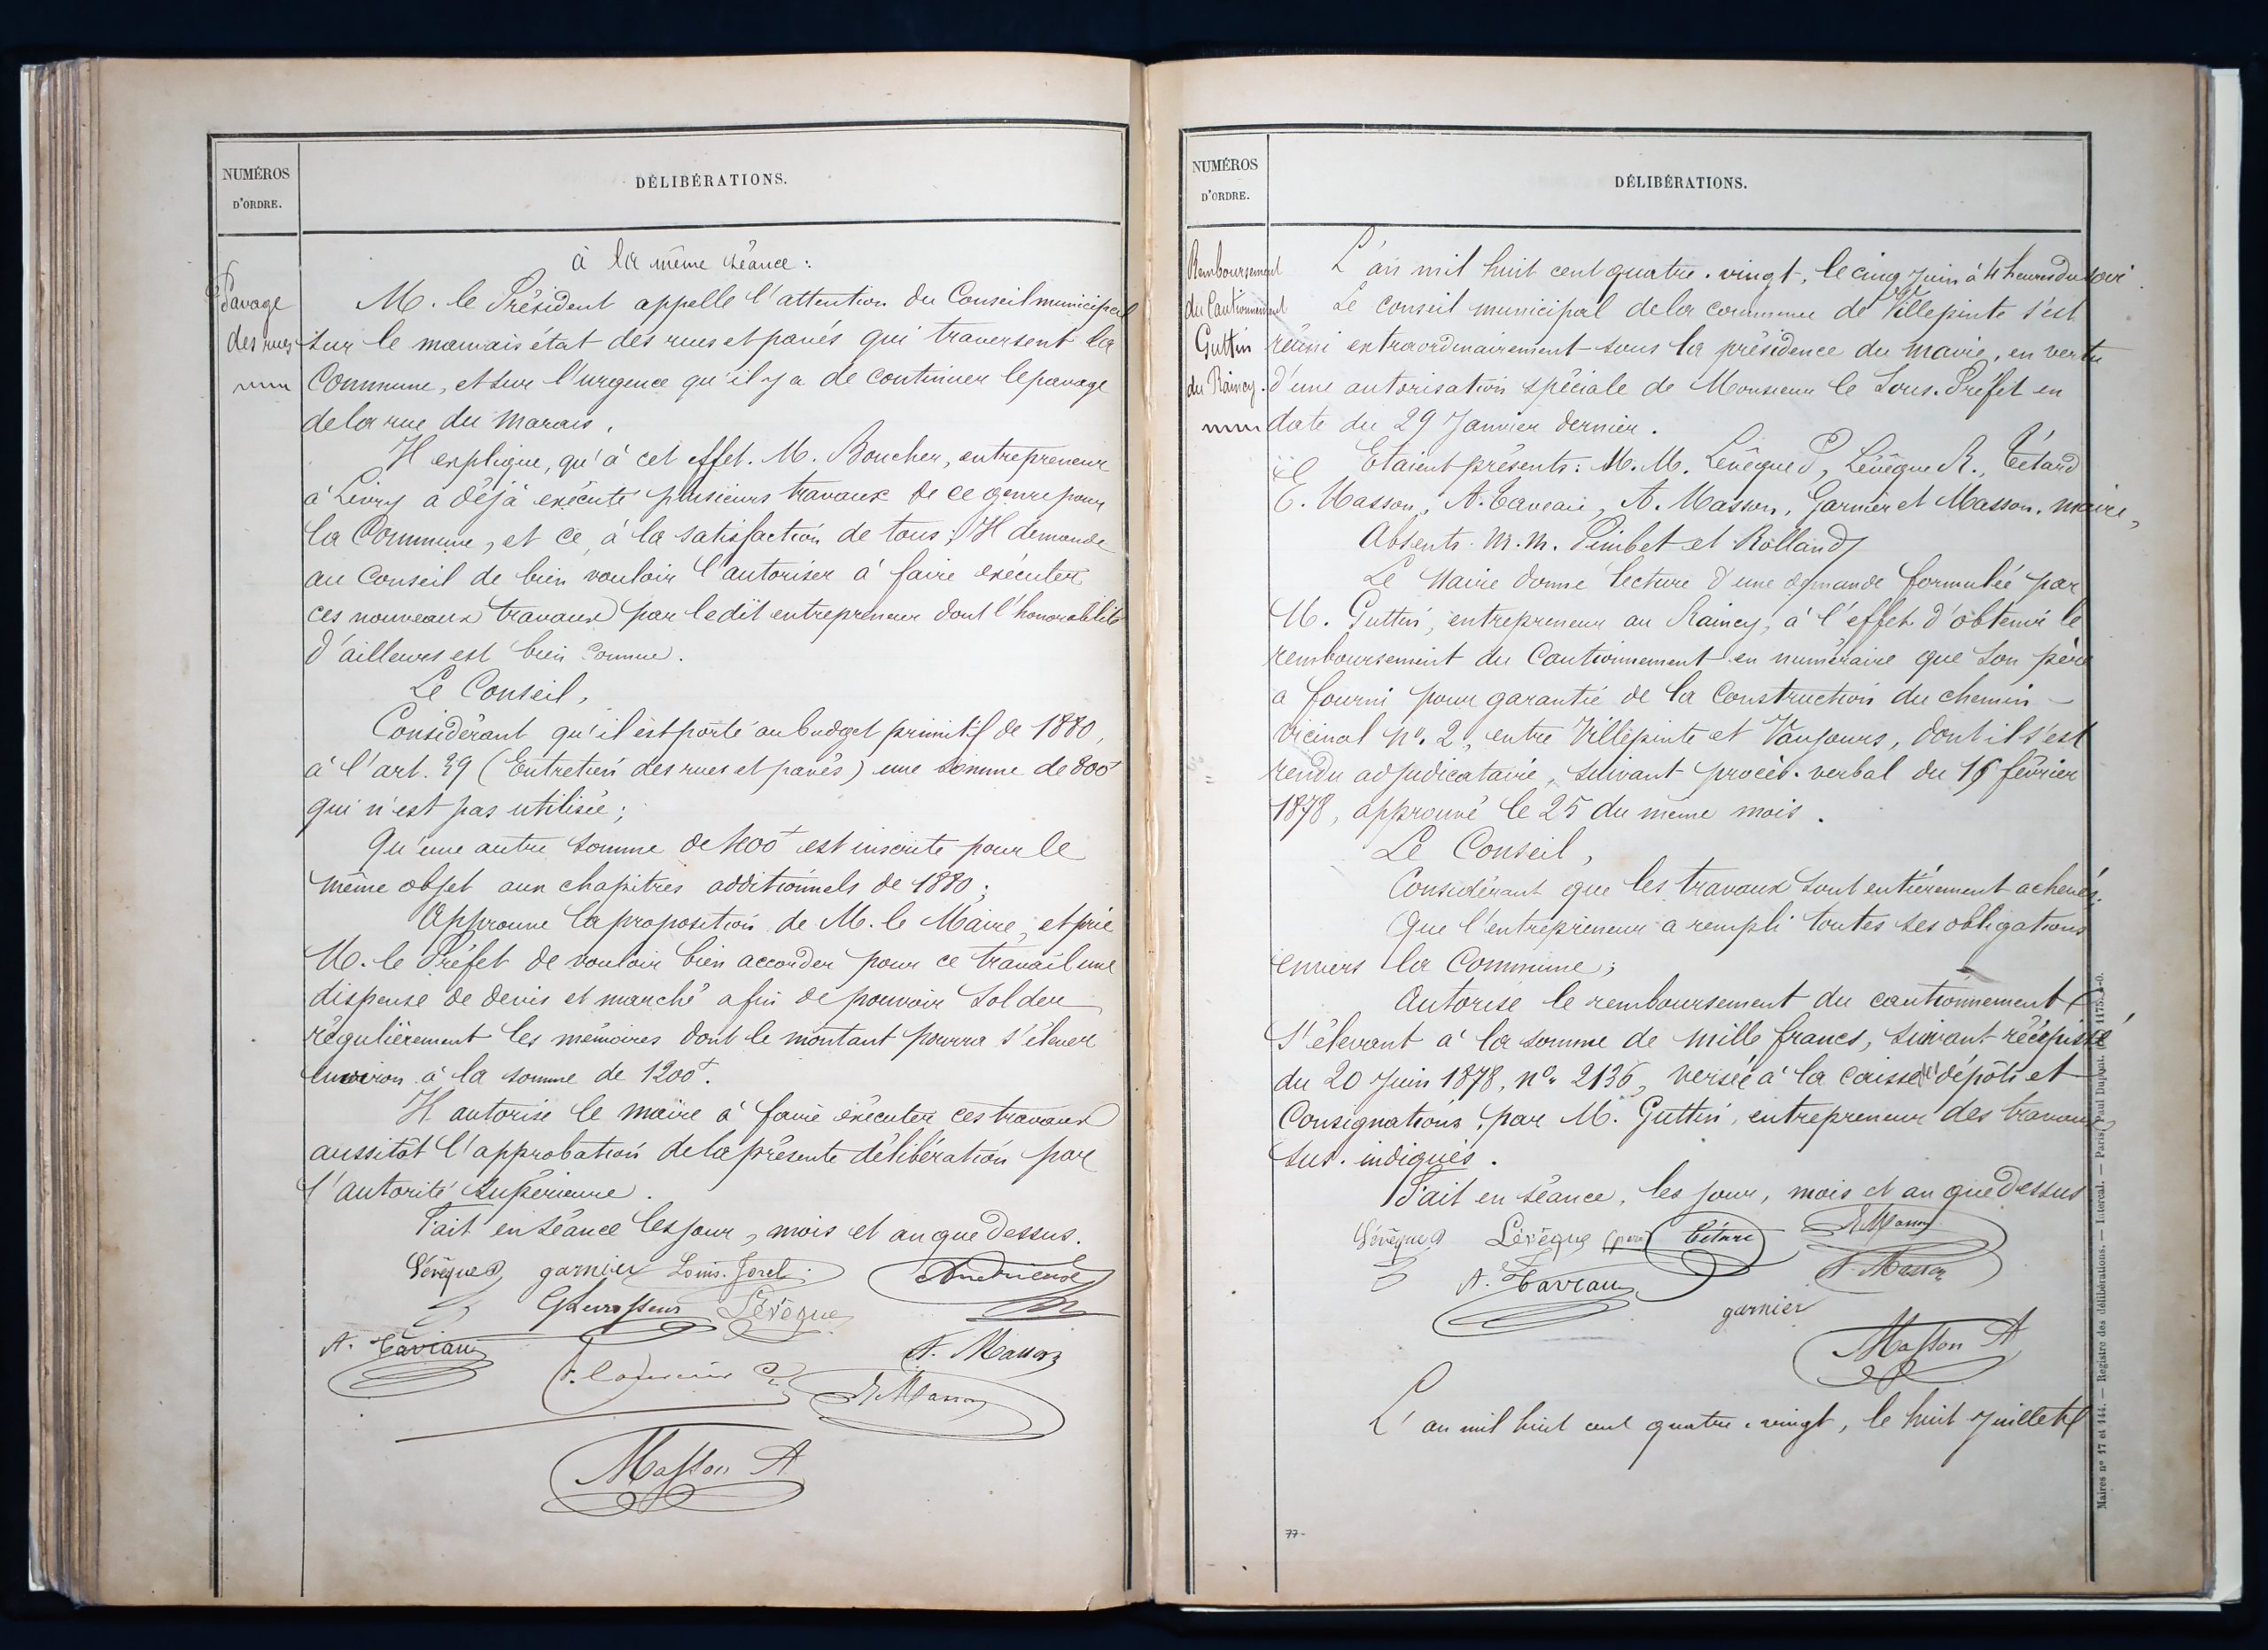 NUMÉROS
D'ORDRE.
DÉLIBÉRATIONS.
à la même séance :
Pavage
des rues
M. le Président appelle l'attention du Conseil municipal
sur le mauvais état des rues et pavés qui traversent la
Commune, et sur l'urgence qu'il y a de continuer le pavage
de la rue du Marais.
Il explique, qu'à cet effet. M. Boucher, entrepreneur
à Livry a déjà exécuté plusieurs travaux de ce genre pour
la Commune, et ce, à la satisfaction de tous ; Il demande
au Conseil de bien vouloir l'autoriser à faire exécuter
ces nouveaux travaux par ledit entrepreneur dont l'honorabilité
d'ailleurs est bien connue.
Le Conseil,
Considérant qu'il est porté au budget primitif de 1880,
à l'art. 39 (Entretien des rues et pavés) une somme de 800f
qui n'est pas utilisée ;
Qu'une autre somme de 400f est inscrite pour le
même objet aux chapitres additionnels de 1880 ;
Approuve la proposition de M. le Maire, et prie
M. le Préfet de vouloir bien accorder pour ce travail une
dispense de devis et marché afin de pouvoir solder
régulièrement les mémoires dont le montant pourra s'élever
environ à la somme de 1200f.
Il autorise le maire à faire exécuter ces travaux
aussitôt l'approbation de la présente délibération par
l'autorité supérieure.
Fait en séance les jour, mois et an que dessus.
Lévêque garnier Louis Jorel
Lévêque
A. Taveau A. Masson
E. Masson
Masson A
NUMÉROS
D'ORDRE.
DÉLIBÉRATIONS.
Remboursement
du Cautionnement
Guttin
du Raincy.
L'an mil huit cent quatre-vingt, le cinq Juin à 4 heures du soir.
Le conseil municipal de la commune de Villepinte s'est
réuni extraordinairement sous la présidence du maire, en vertu
d'une autorisation spéciale de Monsieur le Sous-Préfet en
date du 29 Janvier dernier.
Etaient présents : M. M. Lévêque P, Lévêque R., Tétard
E. Masson, A. Taveau, A. Masson, Garnier et Masson. maire,
Absents. M. M. Pimbet et Rolland
Le Maire donne lecture d'une demande formulée par
M. Guttin, entrepreneur au Raincy, à l'effet d'obtenir le
remboursement du Cautionnement en numéraire que son père
a fourni pour garantie de la Construction du chemin
vicinal no. 2, entre Villepinte et Vaujours, dont il s'est
rendu adjudicataire, suivant procès-verbal du 16 février
1878, approuvé le 25 du même mois.
Le Conseil,
Considérant que les travaux sont entièrement achevés.
Que l'entrepreneur a rempli toutes ses obligations
envers la Commune ;
Autorise le remboursement du cautionnement
s'élevant à la somme de mille francs, suivant récépissé
du 20 Juin 1878, no. 2136, versée à la caisse des dépôts et
Consignations, par M. Guttin, entrepreneur des travaux
sus-indiqués.
Fait en séance, les jour, mois et an que dessus
Lévêque Lévêque (père) Tétard E. Masson
A. Taveau A. Masson
garnier
Masson A
L'an mil huit cent quatre-vingt, le huit Juillet
77-
Maires nos 17 et 144. — Registre des délibérations. — Intercal. — Paris, Paul Dupont.